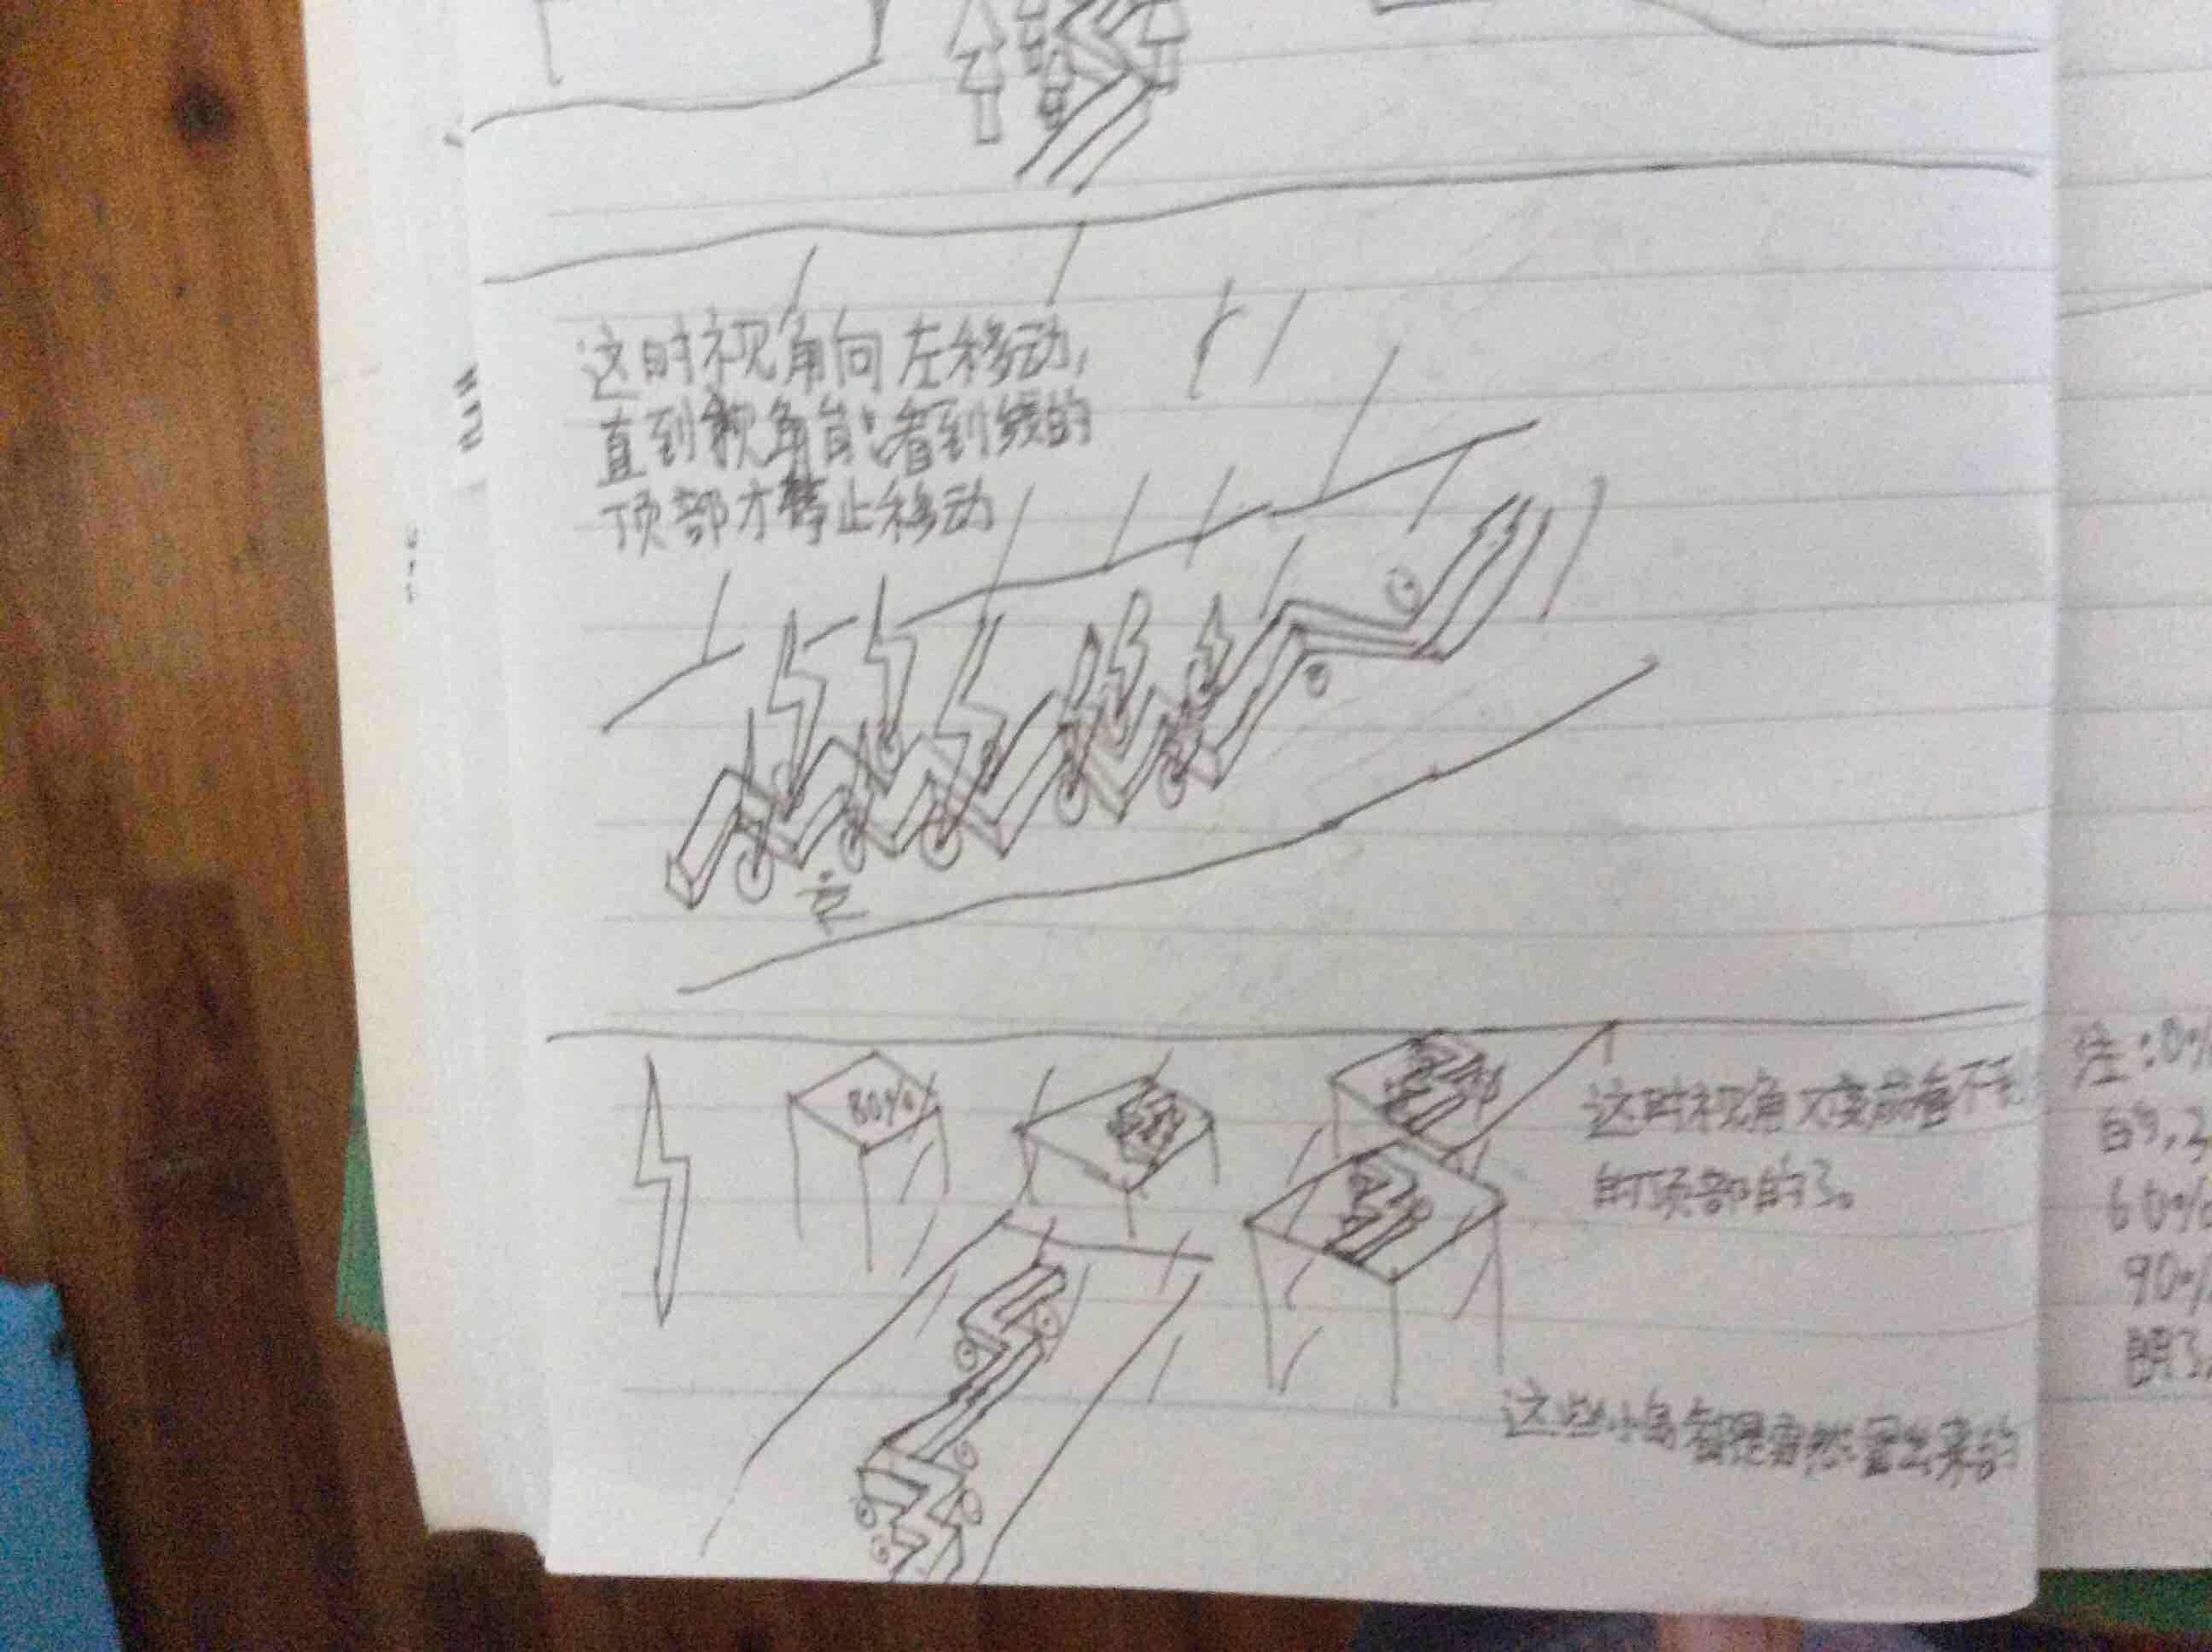 这时视角向左移动,
直到视角能看到线的
顶部才停止移动
80%
这时视角又变成看不
的顶部的了。
这些小岛都是突然冒出来的
注:0%
的,
60%
90%
明了